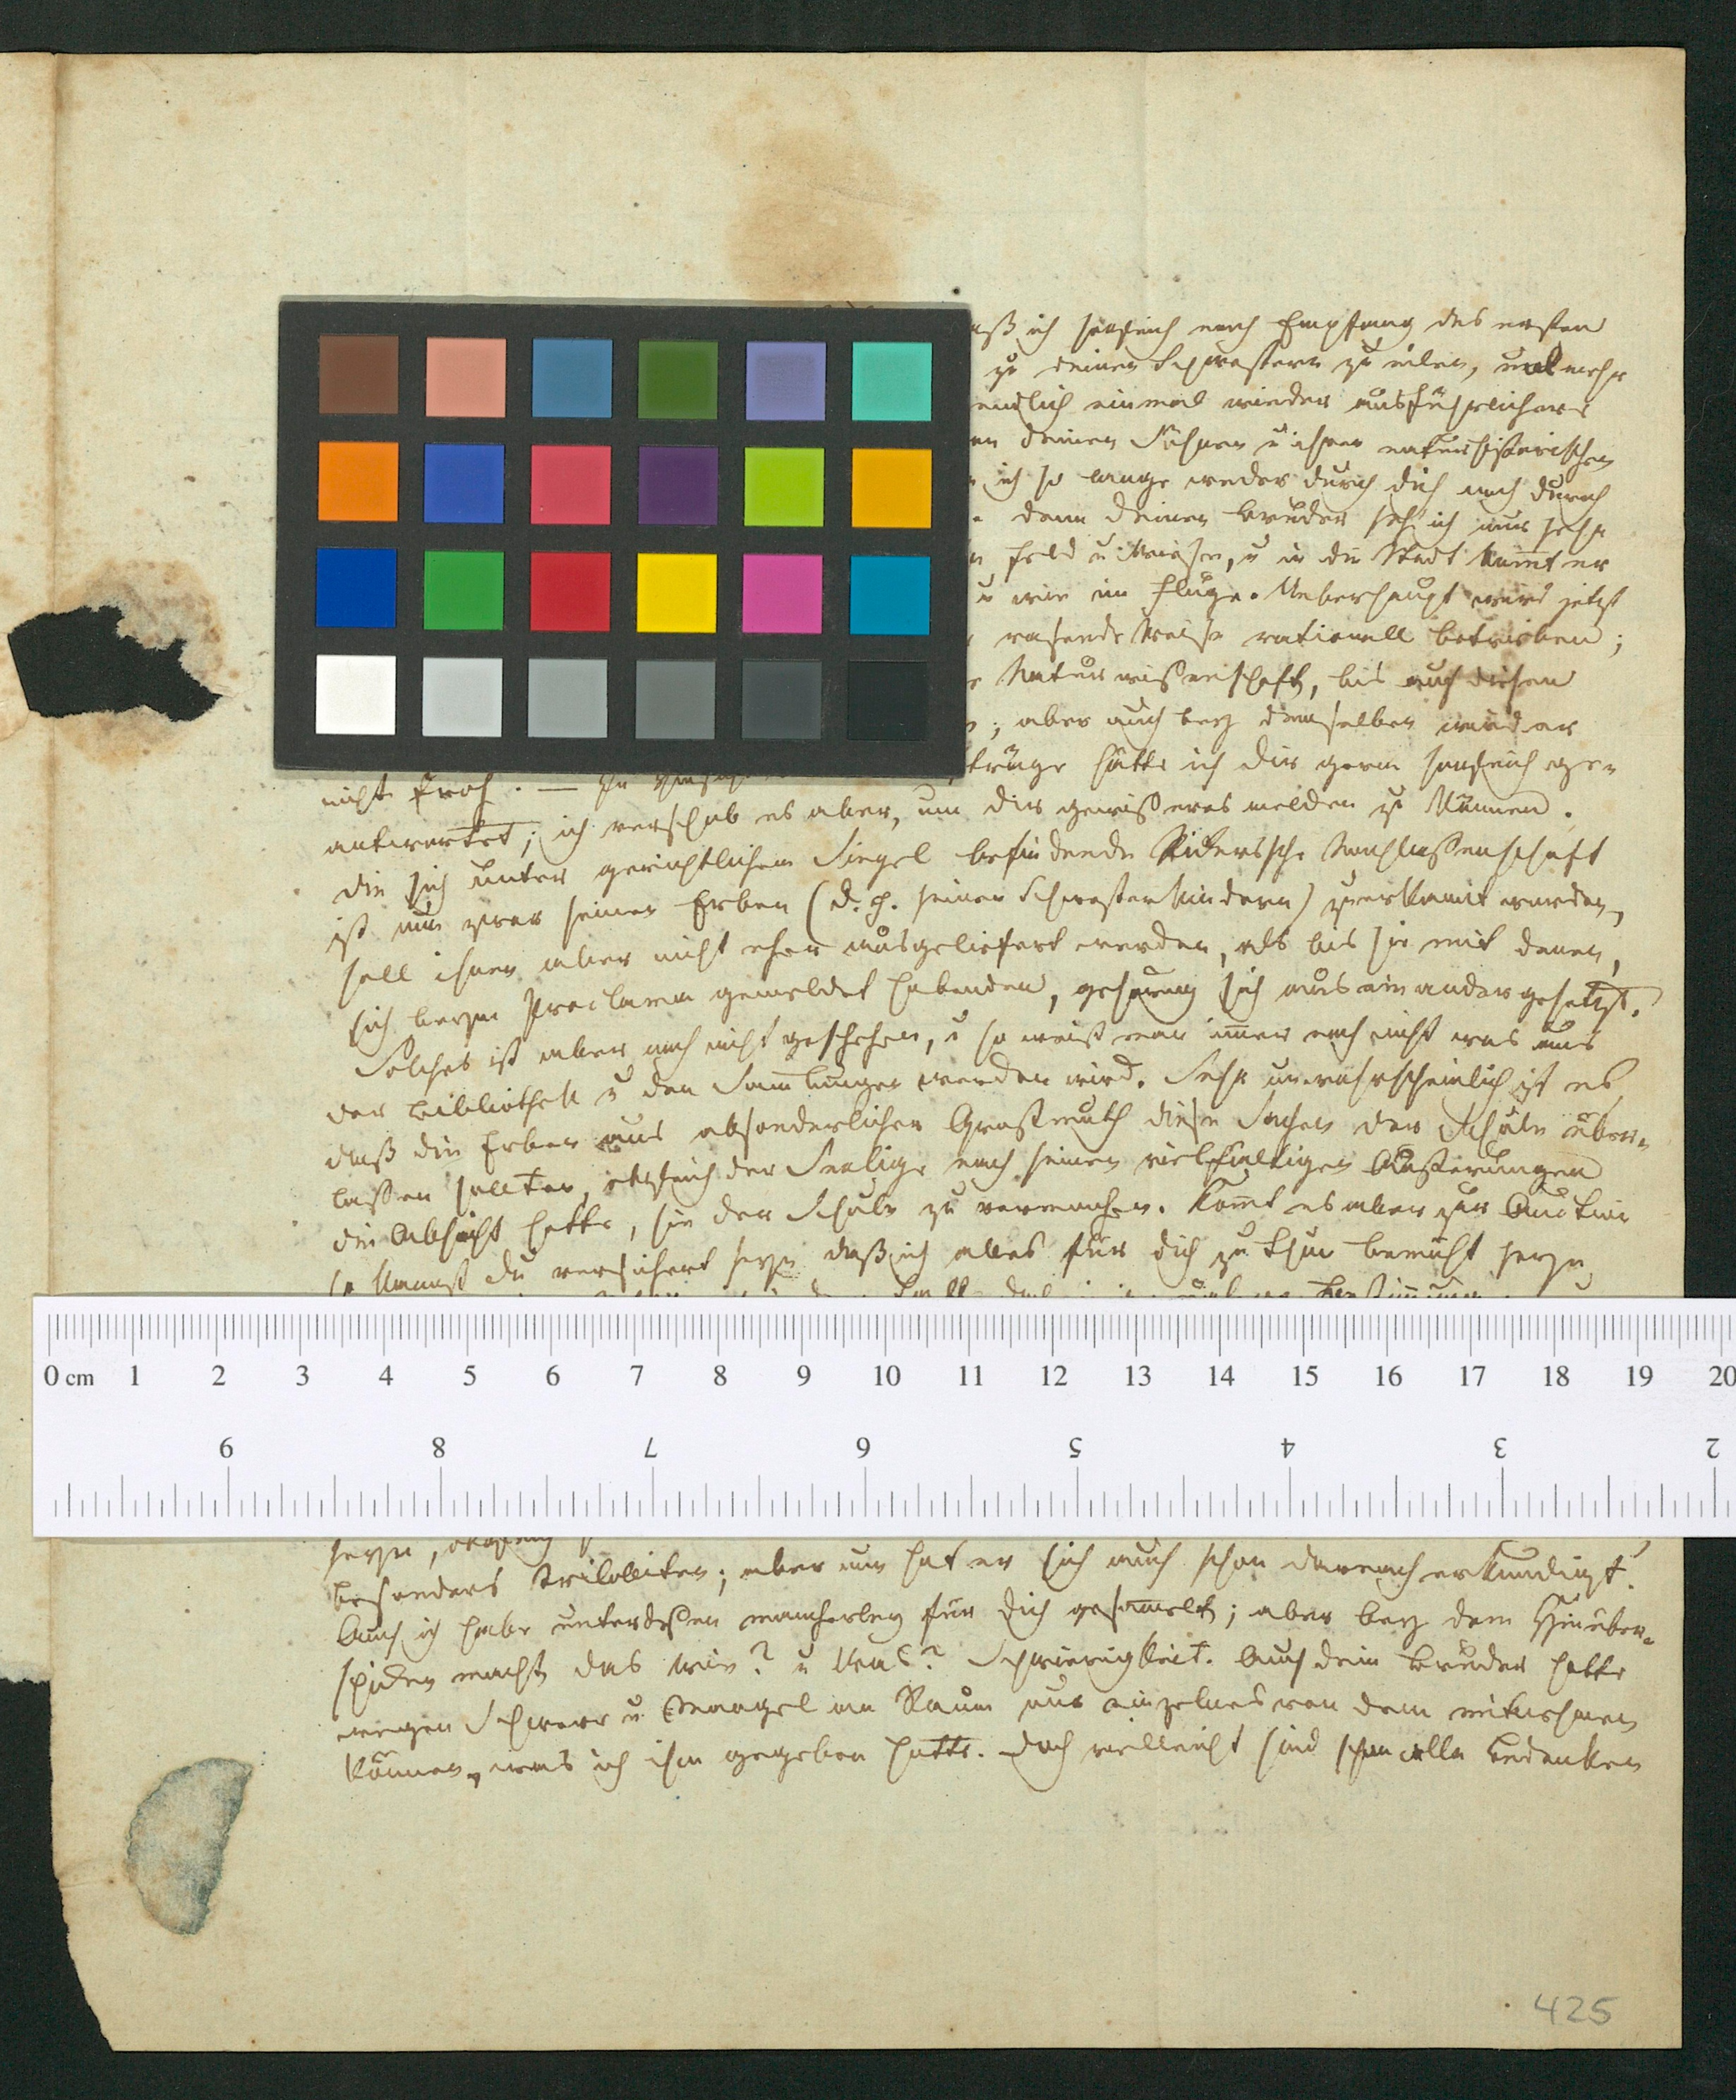 ich sogleich nach Empfang des ersten
zu deinen Schwestern zu eilen, und mehr
endlich einmal wieder ausführlichere
deinen Söhnen u ihren naturhistorischen
ich so lange weder durch dich noch durch
denn deinen Bruder seh' ich nur sehr
Feld u Wiesen, u in die Stadt kom̅t er
u wie im Fluge. Ueberhaupt wird jetzt
rasende Weise rationell betrieben;
Naturwißenschaft, bis auch diesen
; aber auch bey demselben wird er
nicht froh. — hätte ich dir gern sogleich ge=
antwortet; ich verschob es aber, um dir gewißeres melden zu können.
die sich unter gerichtlichem Siegel befindende Nachlaßenschaft
ist nun zwar seinen Erben (d. h. seinen Schwesterkindern) zuerkannt worden,
soll ihnen aber nicht eher ausgeliefert werden, als bis sie mit denen,
sich beym Proclama gemeldet habenden, gehörig sich auseinandergesetzt.
Solches ist aber noch nicht geschehen, u so weiß man im̅er noch nicht was aus
der Bibliothek u den Sam̅lungen werden wird. Sehr unwahrscheinlich ist es,
daß die Erben aus absonderlicher Großmuth diese Sachen der Schule über=
laßen sollten, obgleich der Seelige nach seinen vielfältigen Äußerungen
die Absicht hatte, sie der Schule zu vermachen. Kom̅t es aber zur Auction
so kannst du versichert seyn daß ich alles für dich zu thun bemüht seyn
seyn, obgleich
besonders Trilobiten; aber nun hat er sich auch schon darnach erkundigt.
Auch ich habe unterdeßen mancherley für dich gesam̅elt; aber bey dem Hinüber=
schicken macht das Wie? u Was? Schwierigkeit. Auch dein Bruder hatte
wegen Schwere u Mangel an Raum nur einzelnes von dem mitnehmen
können, was ich ihm gegeben hatte. Doch vielleicht sind schon alle Bedenken
0 cm 1 2 3 4 5 6 7 8 9 10 11 12 13 14 15 16 17 18 19 20
9 8 7 6 5 4 3 2
425